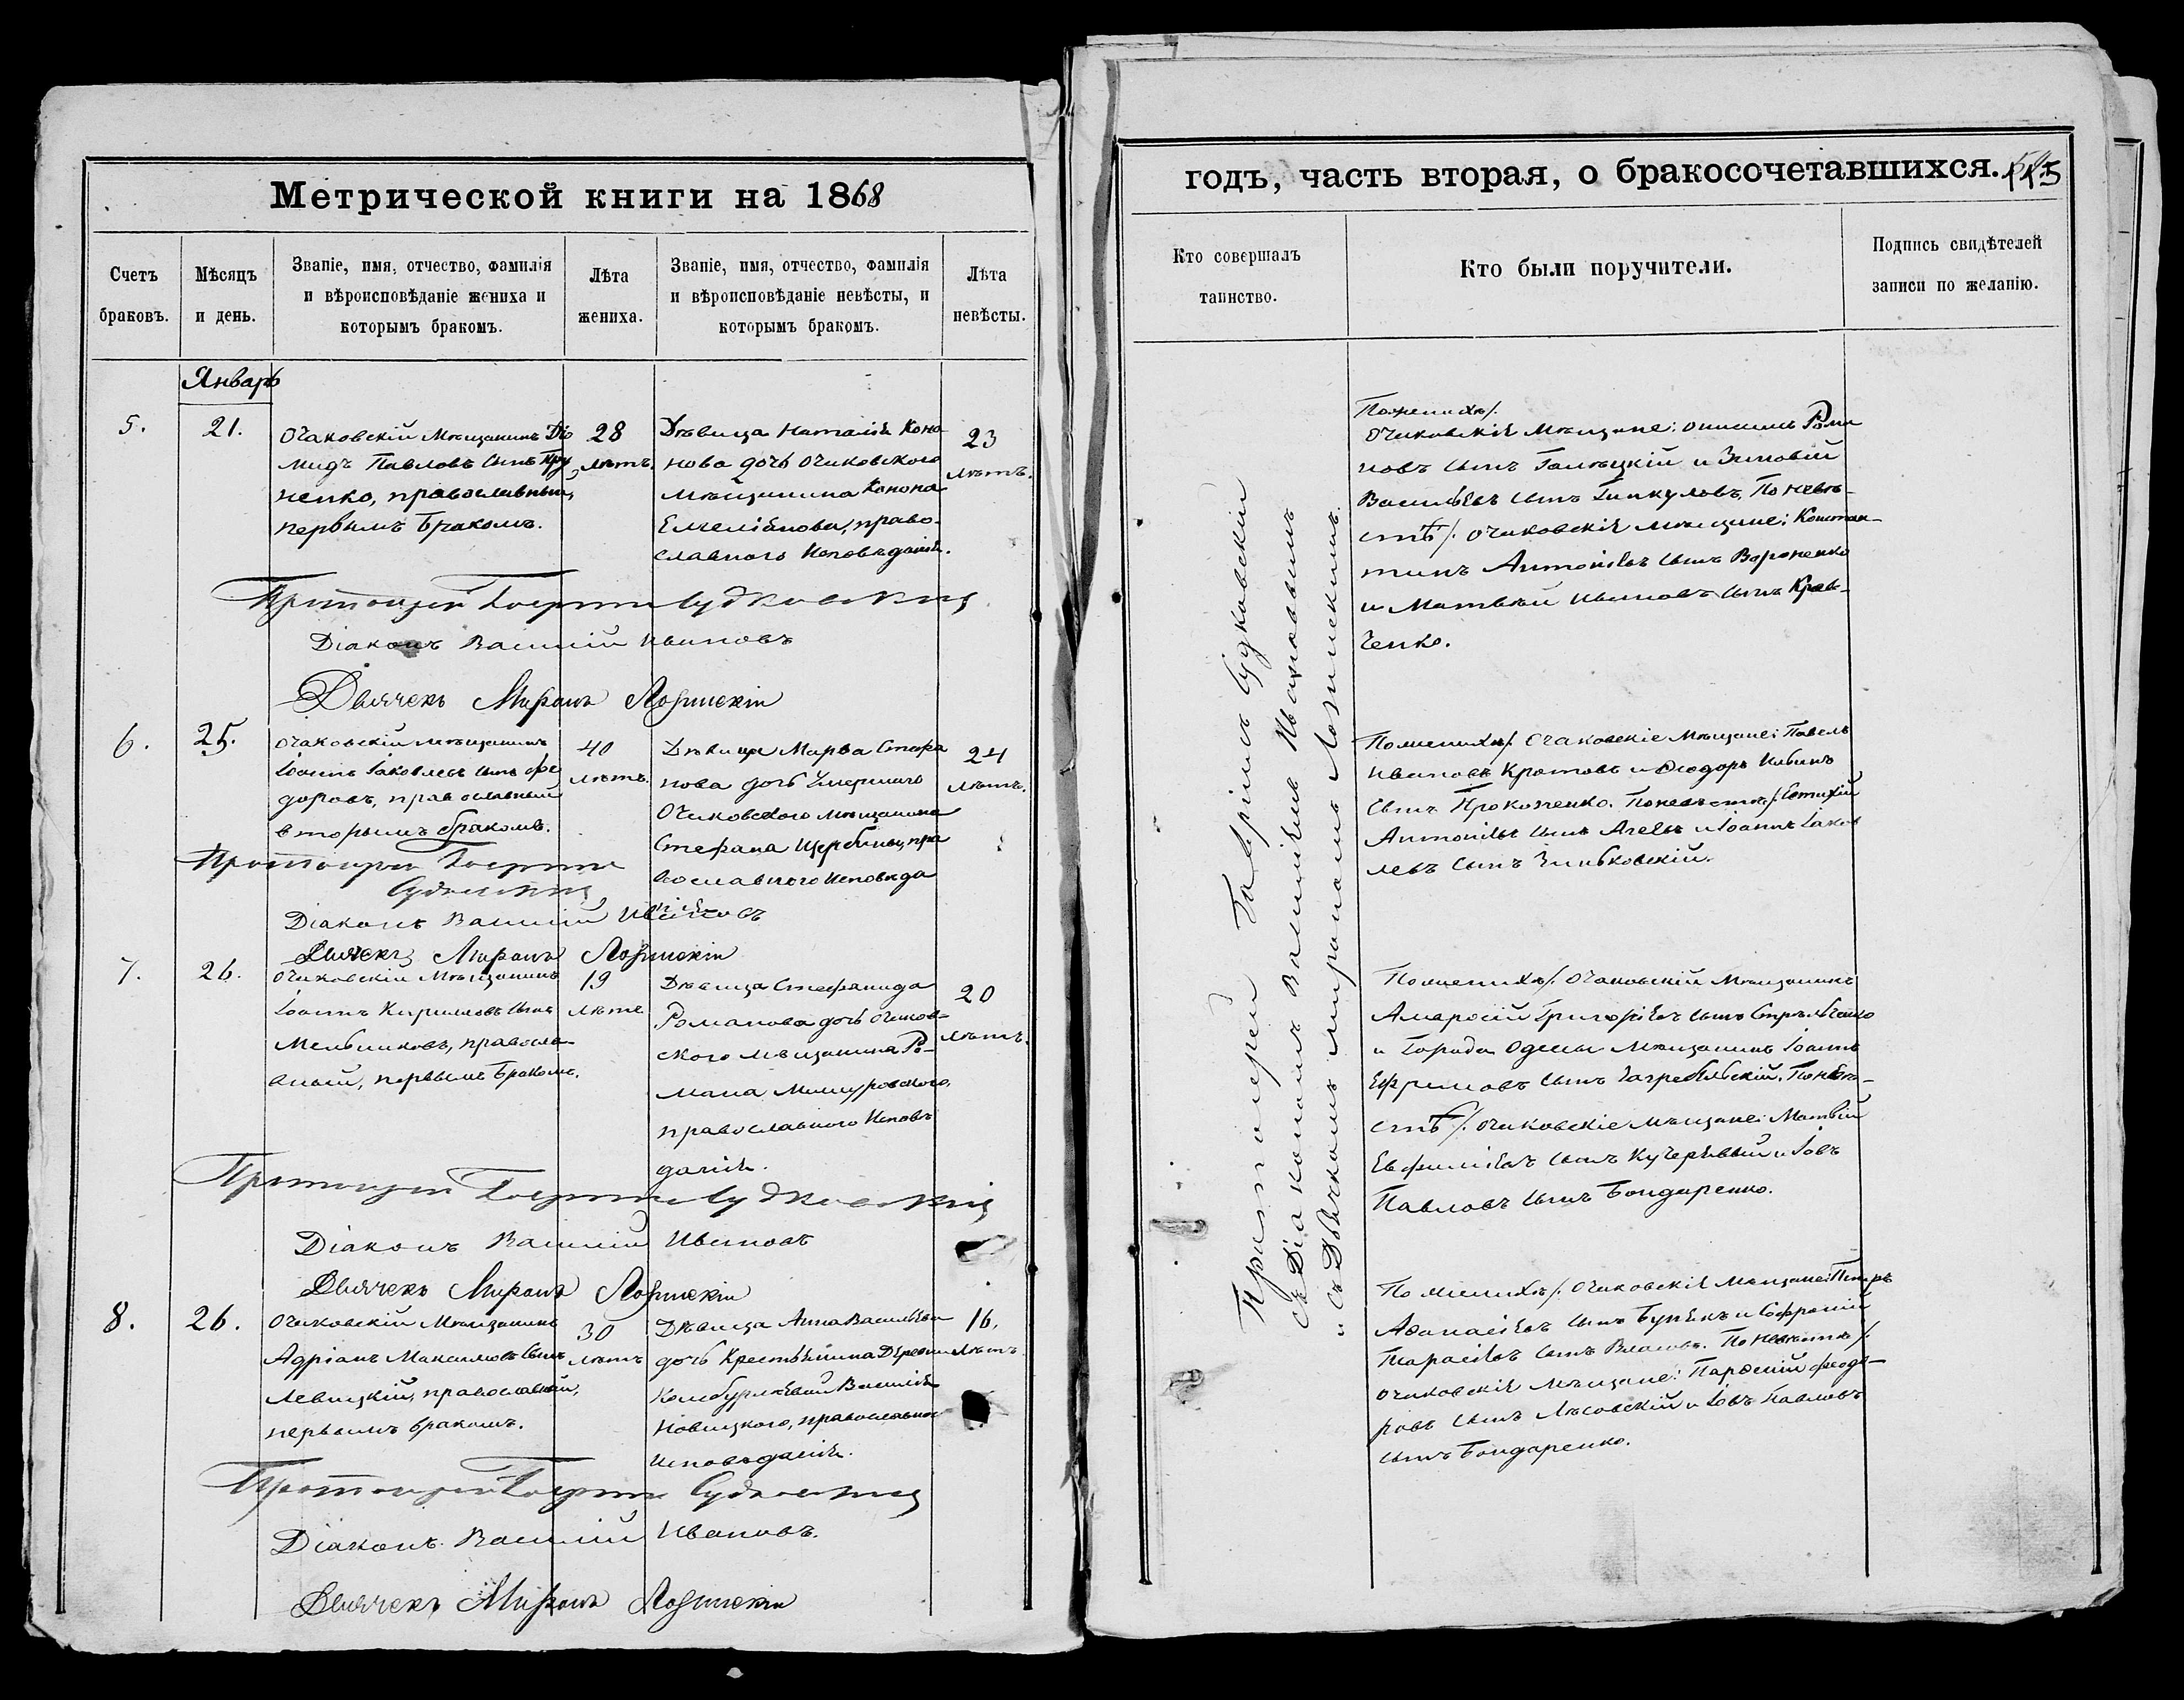 Метрической книги на 1868
Счетъ браковъ.
Мѣсяцъ и день.
Званіе, имя, отчество, фамилія
и вѣроисповѣданіе жениха и
которымъ бракомъ.
Лѣта
жениха.
Званіе, имя, отчество, фамилія
и вѣроисповѣданіе невѣсты, и
которымъ бракомъ.
Лѣта
невѣсты.
Январь
5.
21.
Очаковскій Мѣщанинъ Діо
мидъ Павловъ сынъ Кру
ненко, православный,
первымъ бракомъ.
28
лѣтъ.
Дѣвица Наталія Коно
нова дочь Очаковского
Мѣщанина Конона
Емеліянова, право-
славного Исповѣданія.
23
лѣтъ.
Протоіерей Гавріилъ Судковскій
Діаконъ Василій Ивановъ
Дьячекъ Миронъ Лозинскій
6.
25.
Очаковскій Мѣщанинъ
Іоаннъ Іаковлевъ сынъ Фе
доровъ, православный
вторымъ бракомъ.
40
лѣтъ.
Дѣвица Марѳа Стефа
нова дочь Умершаго
Очаковского Мѣщанина
Стефана Щербины, пра
вославного Исповѣда
нія
24
лѣтъ.
Протоіерей Гавріилъ
Судковскій
Діаконъ Василій Ивановъ
Дьячекъ Миронъ Лозинскій
7.
26.
Очаковскій Мѣщанинъ
Іоаннъ Кириловъ сынъ
Мельниковъ, правосла-
вный, первымъ бракомъ.
19
лѣтъ
Дѣвица Стефанида
Романова дочь Очаков-
ского Мѣщанина Ро-
мана Мишуровского,
православного Исповѣ
данія.
20
лѣтъ.
Протоіерей Гавріилъ Судковскій
Діаконъ Василій Ивановъ
Дьячекъ Миронъ Лозинскій
8.
26.
Очаковскій Мѣщанинъ
Адріанъ Максимовъ сынъ
Левицкій, православный,
первымъ бракомъ.
30
лѣтъ
Дѣвица Анна Васильева
дочь Крестьянина Деревни
Василія
Новицкого, православного
Исповѣданія.
16.
лѣтъ.
Протоіерей Гавріилъ Судковскій
Діаконъ Василій Ивановъ.
Дьячекъ Миронъ Лозинскій
годъ, часть вторая, о бракосочетавшихся.
Кто совершалъ
таинство.
Кто были поручители.
Подпись свидѣтелей
записи по желанію.
Протоіерей Гавріилъ Судковскій
съ Діакономъ Василіемъ Ивановымъ
и съ Дьячкомъ Мирономъ Лозинскимъ.
По женихѣ/:
Очаковскіе Мѣщане: Онисимъ Рома
новъ сынъ Галѣцкій и Зиновій
Васильевъ сынъ Гинкуловъ. По невѣ-
стѣ/: Очаковскіе Мѣщане: Констан-
тинъ Антоніевъ сынъ Вороненко
и Матвѣй Ивановъ сынъ Крав-
ченко.
По женихѣ/: Очаковскіе Мѣщане: Павелъ
Ивановъ Кротовъ и Ѳеодоръ
сынъ Прокопенко. По невѣстѣ/:
Антоніевъ сынъ и Іоаннъ Іаков
левъ сынъ Зиньковскій.
По женихѣ/: Очаковскій Мѣщанинъ
Амвросій Григорьевъ сынъ Стрѣльченко
и Города Одессы Мѣщанинъ Іоаннъ
Ефремовъ сынъ Загребельскій. По невѣ-
стѣ/: Очаковскіе Мѣщане: Матвѣй
Евфиміевъ сынъ Кучерявый и Іовъ
Павловъ сынъ Бондаренко.
По женихѣ/: Очаковскіе Мѣщане: Петръ
Аѳанасіевъ сынъ и Софроній
Тарасіевъ сынъ Власовъ. По невѣстѣ/:
Очаковскіе Мѣщане: Парѳеній Ѳеодо-
ровъ сынъ Лисовскій и Іовъ Павловъ
сынъ Бондаренко.